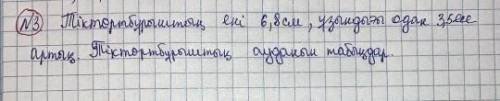 №3. Тіктөртбұрыштың ені 6,8 см, ұзындығы одан 3,5 есе
артық. Тіктөртбұрыштың ауданын табыңдар.